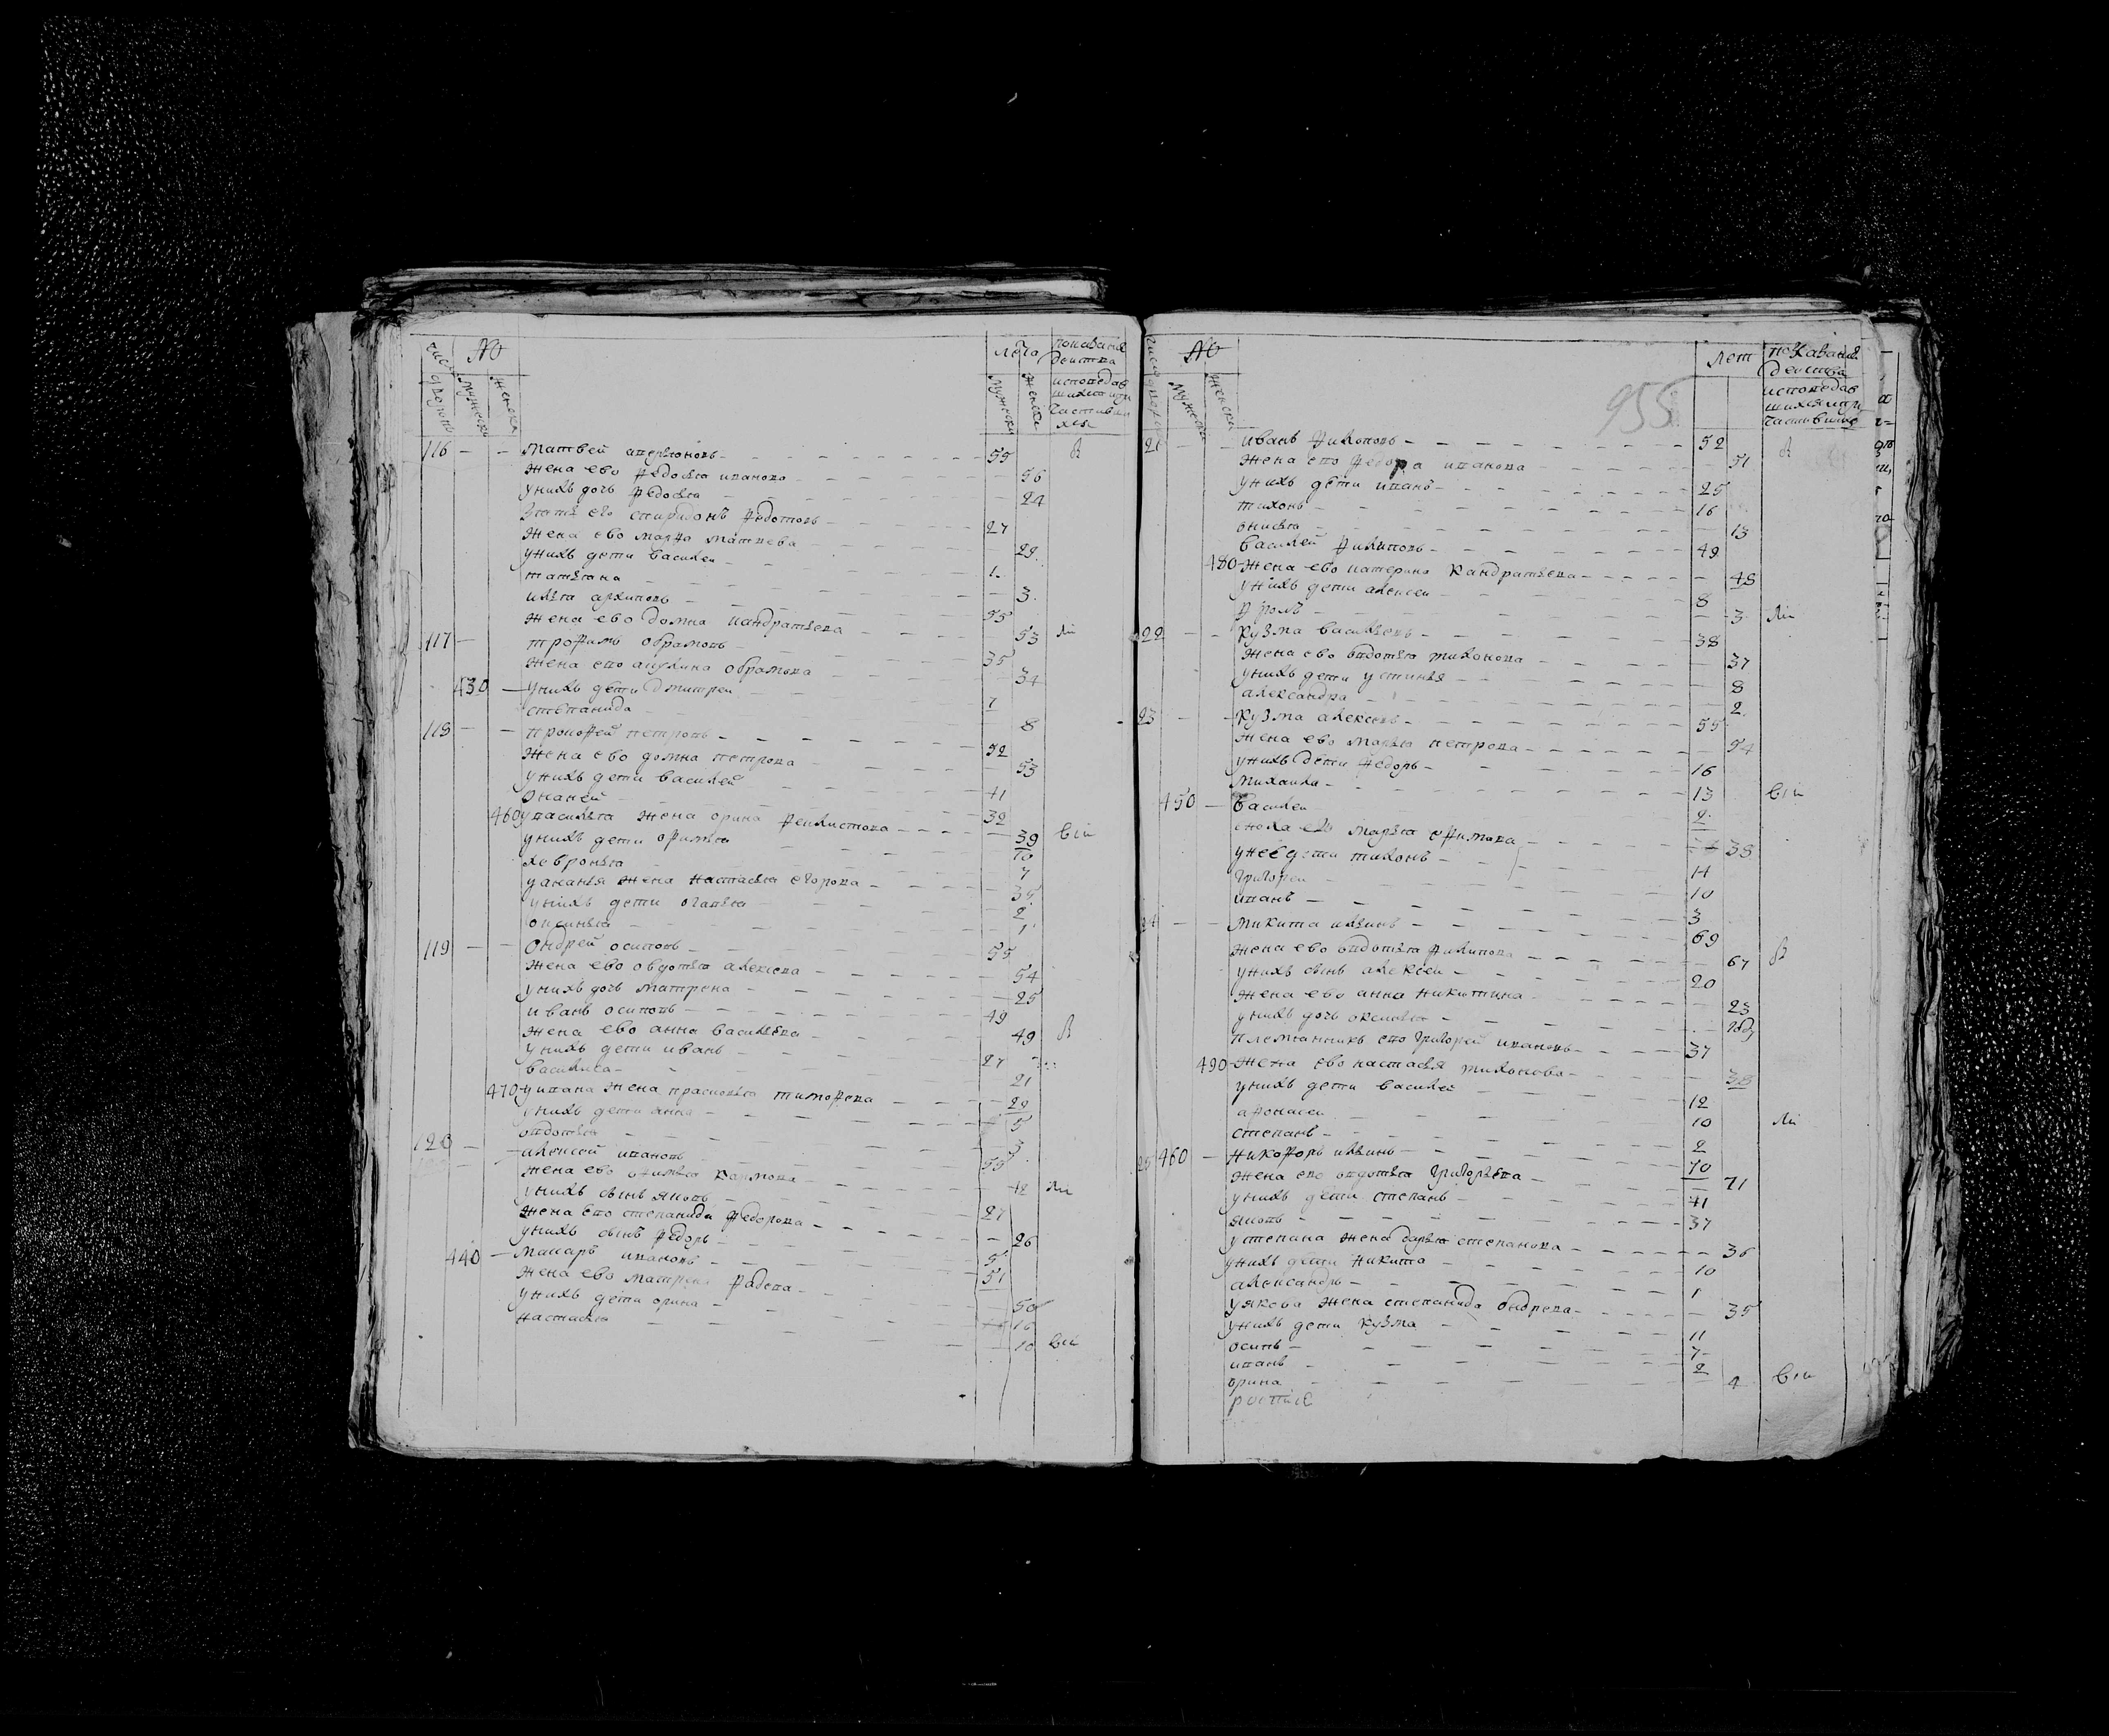 №
лѣта
мужеска
женска
116 Матвей 55
жена ево федосья иванова 56
у нихъ дочь федосья 24
зять его спиридонъ федотовъ 27
жена ево марфа матвева 29
у нихъ дети василеи 1
татьяна 3
илья архиповъ 55
жена ево домна кандратьева 53
117 трофимъ обрамовъ 35
жена ево акулина обрамова 34
430 у нихъ дети дмитреи 7
степанида 8
118 прокофей петровъ 52
жена ево домна петрова 53
у нихъ дети василей 41
онаней 32
460 у василья жена орина феклистова 39
у нихъ дети офимья 10
хевронья 7
у ананья жена настасья егорова 35
у нихъ дети огапья 2
оксинья 1
119 Ондрей осиповъ 55
жена ево овдотья алексева 54
у нихъ дочь матрена 25
иванъ осиповъ 49
жена ево анна васильева 49
у нихъ дети иванъ 27
василиса 21
470 у ивана жена прасковья тимофева 29
у нихъ дети анна 5
овдотья 3
120 алексей ивановъ 55
жена ево офимья 42
у нихъ сынъ яковъ 27
жена ево степанида федорова 26
у нихъ сынъ федоръ 5
440 макаръ ивановъ 51
жена ево матрена фадева 50
у нихъ дети орина 16
настасья 10
955
№
лет
мужеска
женска
21 иванъ филиповъ 52
жена ево федора иванова 51
у нихъ дети иванъ 25
тихонъ 16
онисья 13
василей филиповъ 49
480 жена ево катерина кандратьева 48
у нихъ дети алексеи 8
фролъ 3
22 кузма васильевъ 38
жена ево овдотья тихонова 37
у нихъ дети устинья 8
александра 2
23 кузма алексевъ 55
жена ево марья петрова 54
у нихъ дети федоръ 16
михаила 13
450 василеи 2
сноха ево марья ефимова 38
у нее дети тихонъ 14
григореи 10
иванъ 3
24 микита ильинъ 69
жена ево овдотья филипова 67
у нихъ сынъ алексеи 20
жена ево анна никитина 23
у нихъ дочь оксинья
племянникъ ево григорей ивановъ 37
490 жена ево настасья тихонова 38
у нихъ дети василей 12
афонасеи 10
степанъ 2
25 460 никофоръ ильинъ 70
жена ево овдотья григорьева 71
у нихъ дети степанъ 41
яковъ 37
у степана жена дарья степанова 36
у нихъ дети никита 10
александръ 1
у якова жена степанида ондрева 35
у нихъ дети кузма 11
осипъ 7
иванъ 2
орина 4